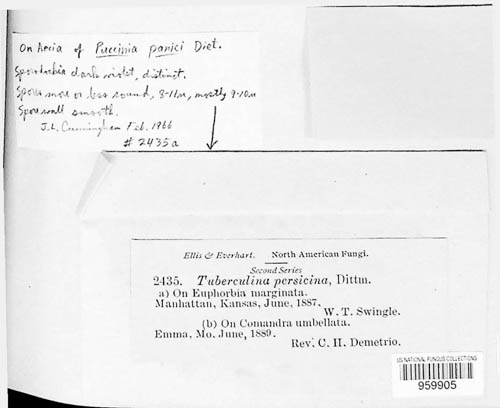 On Aecia of Puccinia panici Diet.
Sporodochia dark violet, distinct.
Spores more or less round, 8-11u, mostly 9-10u
Spore wall smooth.
J.L. Cunningham Feb. 1966
# 2435a
Ellis & Everhart. North American Fungi.
Second Series
2435. Tuberculina persicina, Dittm.
a) On Euphorbia marginata.
Manhattan, Kansas, June, 1887.
W. T. Swingle.
(b) On Comandra umbellata.
Emma, Mo. June, 1889.
Rev. C. H. Demetrio.
US NATIONAL FUNGUS COLLECTIONS
959905